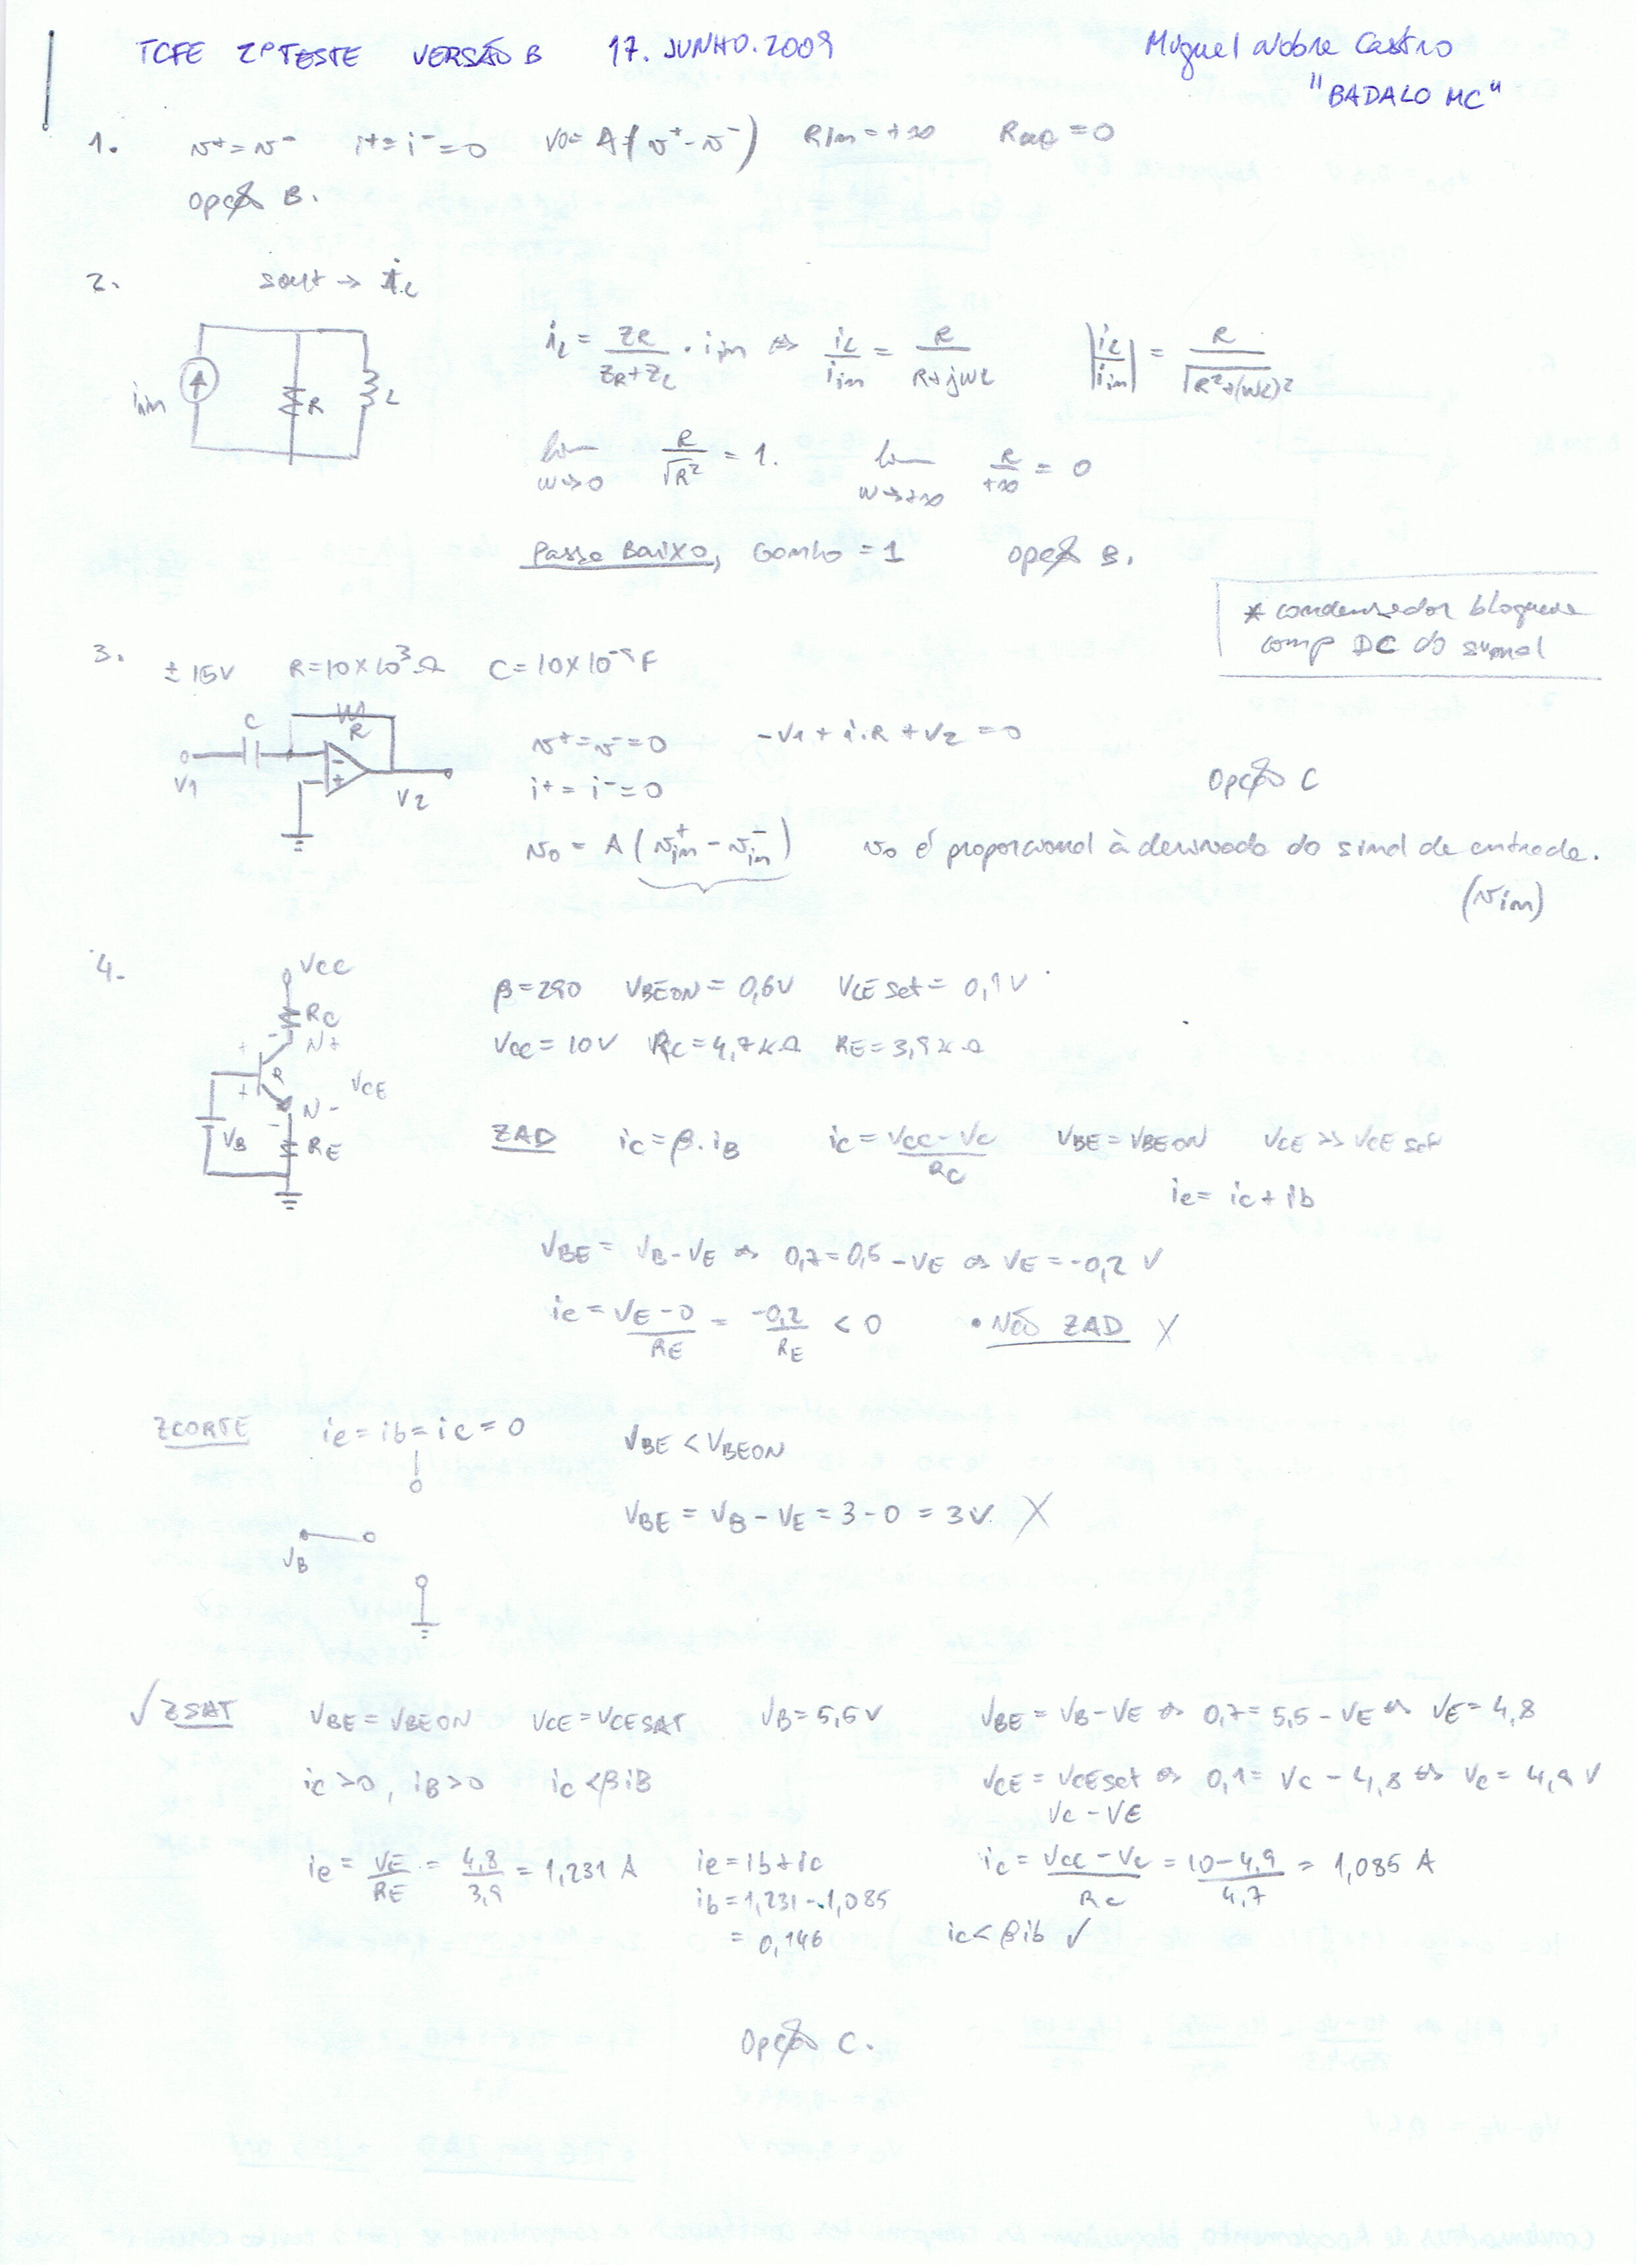 TCFE 2º TESTE VERSÃO B 17. JUNHO. 2009 Miguel Nobre Castro
"BADALO MC"
1. v+ = v- i+ = i- = 0 vo = A(v+ - v-) Rin = +∞ Rout = 0
opção B.
2. sout → iL
iin R L
iL = ZR/(ZR+ZL) · iin ⇔ iL/iin = R/(R+jwL) |iL/iin| = R/√(R²+(wL)²)
lim w→0 R/√R² = 1. lim w→+∞ R/+∞ = 0
Passa Baixo, Ganho = 1 opção B.
* condensador bloqueia
comp DC do sinal
3. ± 15V R=10×10³Ω C=10×10⁻⁹F
C R V1 - + V2
v+ = v- = 0 -V1 + i.R + V2 = 0
i+ = i- = 0
Opção C
vo = A (vin+ - vin-) vo é proporcional à derivada do sinal de entrada.
(vin)
4. VCC RC N+ VCE N- VB RE
β=290 VBEON = 0,6V VCE sat = 0,1V
VCC = 10V RC=4,7KΩ RE=3,9KΩ
ZAD ic = β.iB ic = (VCC-VC)/RC VBE = VBEON VCE >> VCE sat
ie = ic + ib
VBE = VB-VE ⇔ 0,7=0,5-VE ⇔ VE = -0,2 V
ie = (VE-0)/RE = -0,2/RE < 0 • Não ZAD X
ZCORTE ie = ib = ic = 0 VBE < VBEON
VBE = VB - VE = 3-0 = 3V X
VB
√ ZSAT VBE = VBEON VCE = VCESAT VB = 5,5V VBE = VB-VE ⇔ 0,7=5,5-VE ⇔ VE=4,8
ic >0, iB >0 ic < βiB VCE = VCEsat ⇔ 0,1 = VC - 4,8 ⇔ VC = 4,9 V
VC - VE
ie = VE/RE = 4,8/3,9 = 1,231 A ie = ib + ic ic = (VCC - VC)/RC = (10-4,9)/4,7 = 1,085 A
ib = 1,231 - 1,085
= 0,146 ic < βib √
Opção C.